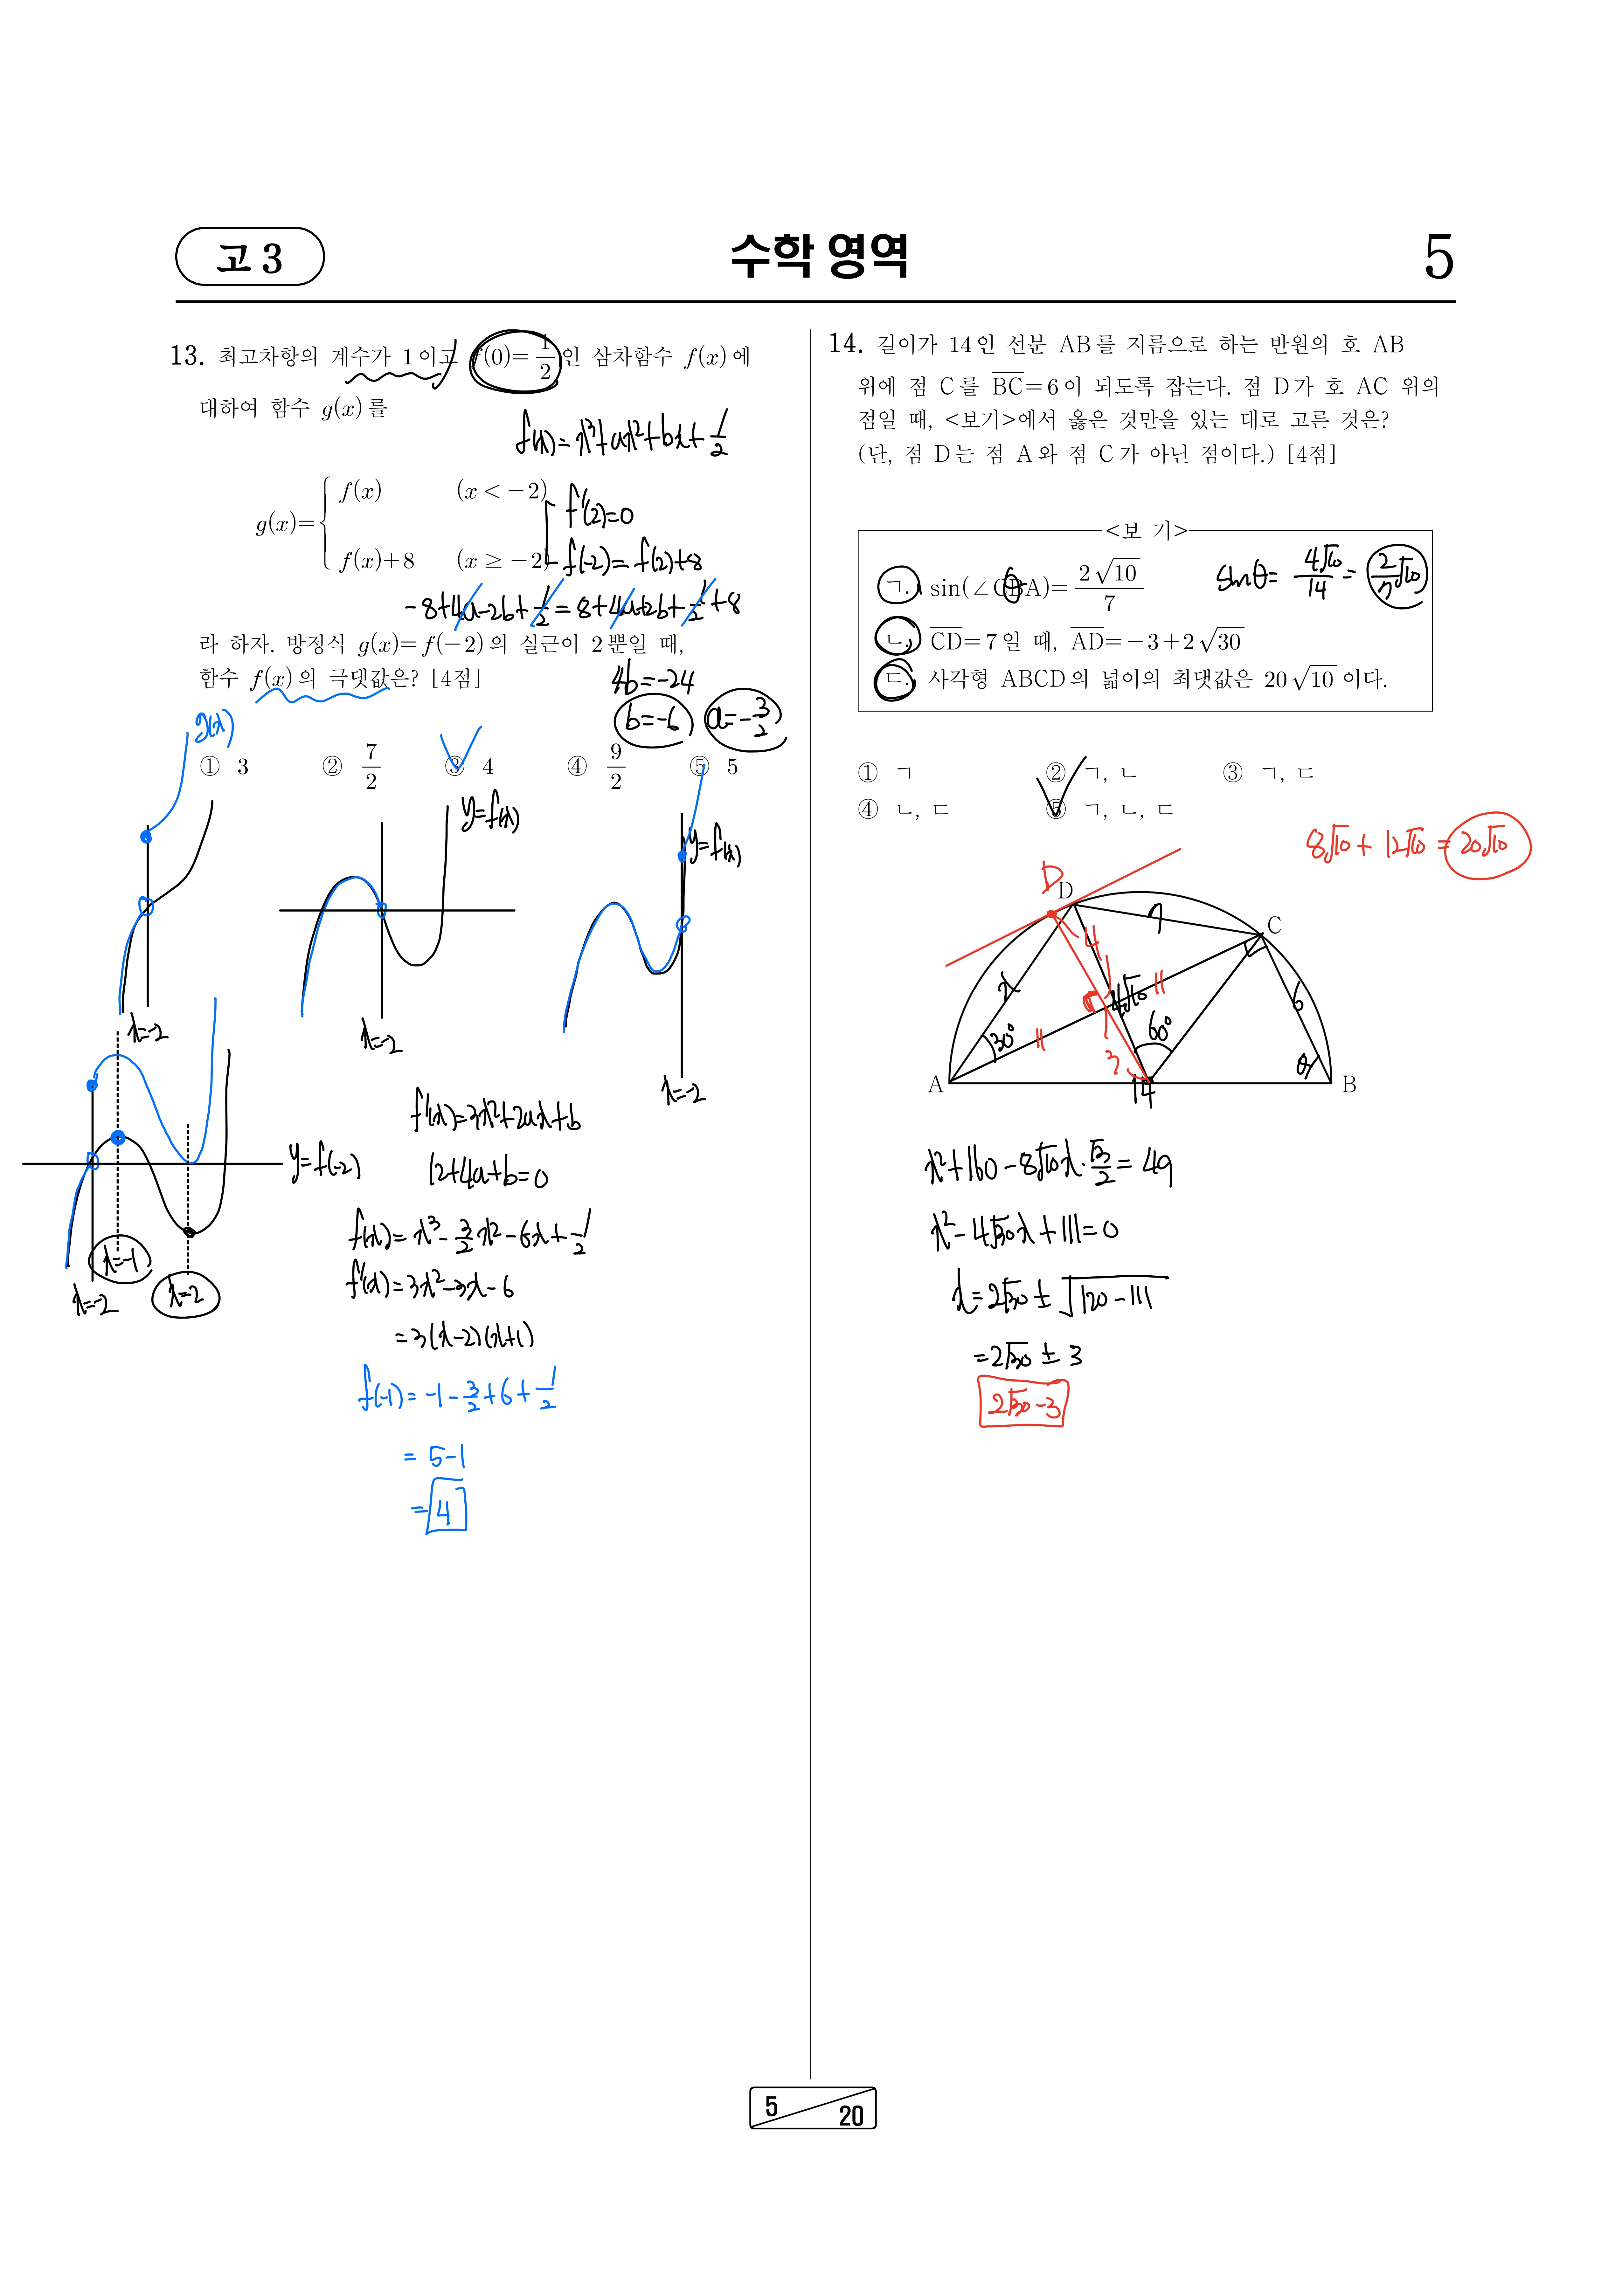 고 3
수학 영역
5
13. 최고차항의 계수가 1이고 f(0)=1/2인 삼차함수 f(x)에
대하여 함수 g(x)를
f(x)=x³+ax²+bx+1/2
g(x)={ f(x) (x<-2)
f(x)+8 (x≥-2)
f'(2)=0
f(-2)=f(2)+8
-8+4a-2b+1/2=8+4a+2b+1/2+8
라 하자. 방정식 g(x)=f(-2)의 실근이 2뿐일 때,
함수 f(x)의 극댓값은? [4점]
4b=-24
b=-6 a=-3/2
g(x)
① 3 ② 7/2 ③ 4 ④ 9/2 ⑤ 5
y=f(x)
y=f(x)
x=-2
x=-2
x=-2
y=f(-2)
x=-1
x=-2
x=2
f'(x)=3x²+2ax+b
12+4a+b=0
f(x)=x³-3/2x²-6x+1/2
f'(x)=3x²-3x-6
=3(x-2)(x+1)
f(-1)=-1-3/2+6+1/2
=5-1
=4
14. 길이가 14인 선분 AB를 지름으로 하는 반원의 호 AB
위에 점 C를 BC=6이 되도록 잡는다. 점 D가 호 AC 위의
점일 때, <보기>에서 옳은 것만을 있는 대로 고른 것은?
(단, 점 D는 점 A와 점 C가 아닌 점이다.) [4점]
<보 기>
ㄱ. sin(∠CBA)=2√10/7
θ
sinθ=4√10/14=2/7√10
ㄴ. CD=7일 때, AD=-3+2√30
ㄷ. 사각형 ABCD의 넓이의 최댓값은 20√10 이다.
① ㄱ ② ㄱ, ㄴ ③ ㄱ, ㄷ
④ ㄴ, ㄷ ⑤ ㄱ, ㄴ, ㄷ
8√10+12√10=20√10
D
D
7
C
4
x
4√10
6
30°
60°
3
θ
A
14
B
x²+160-8√10x·√3/2=49
x²-4√30x+111=0
x=2√30±√120-111
=2√30±3
2√30-3
5
20